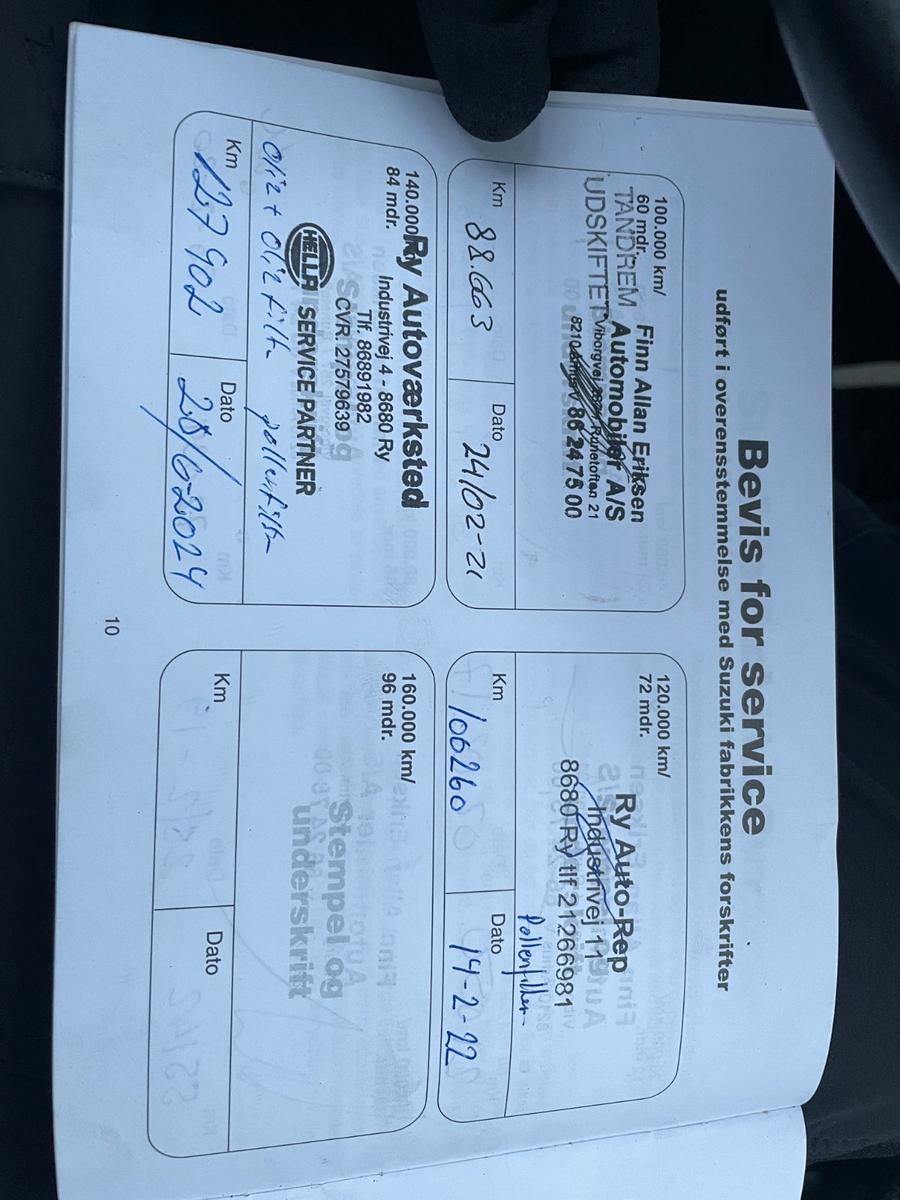 Bevis for service
udført i overensstemmelse med Suzuki fabrikkens forskrifter
100.000 km/
60 mdr.
TANDREM
UDSKIFTET
Finn Allan Eriksen
Automobiler A/S
Runetoften 21
86 24 75 00
Km
88.663
Dato
24/02-21
120.000 km/
72 mdr.
Ry Auto-Rep
Industrivej 11
8680 Ry tlf 21266981
Pollenfilter
Km
106260
Dato
14-2-22
140.000
84 mdr.
Ry Autoværksted
Industrivej 4 - 8680 Ry
Tlf. 86891982
CVR. 27579639
HELLA SERVICE PARTNER
olie + olie filter pollenfilter
Km
127902
Dato
28/6-2024
160.000 km/
96 mdr.
Stempel og
underskrift
Km
Dato
10